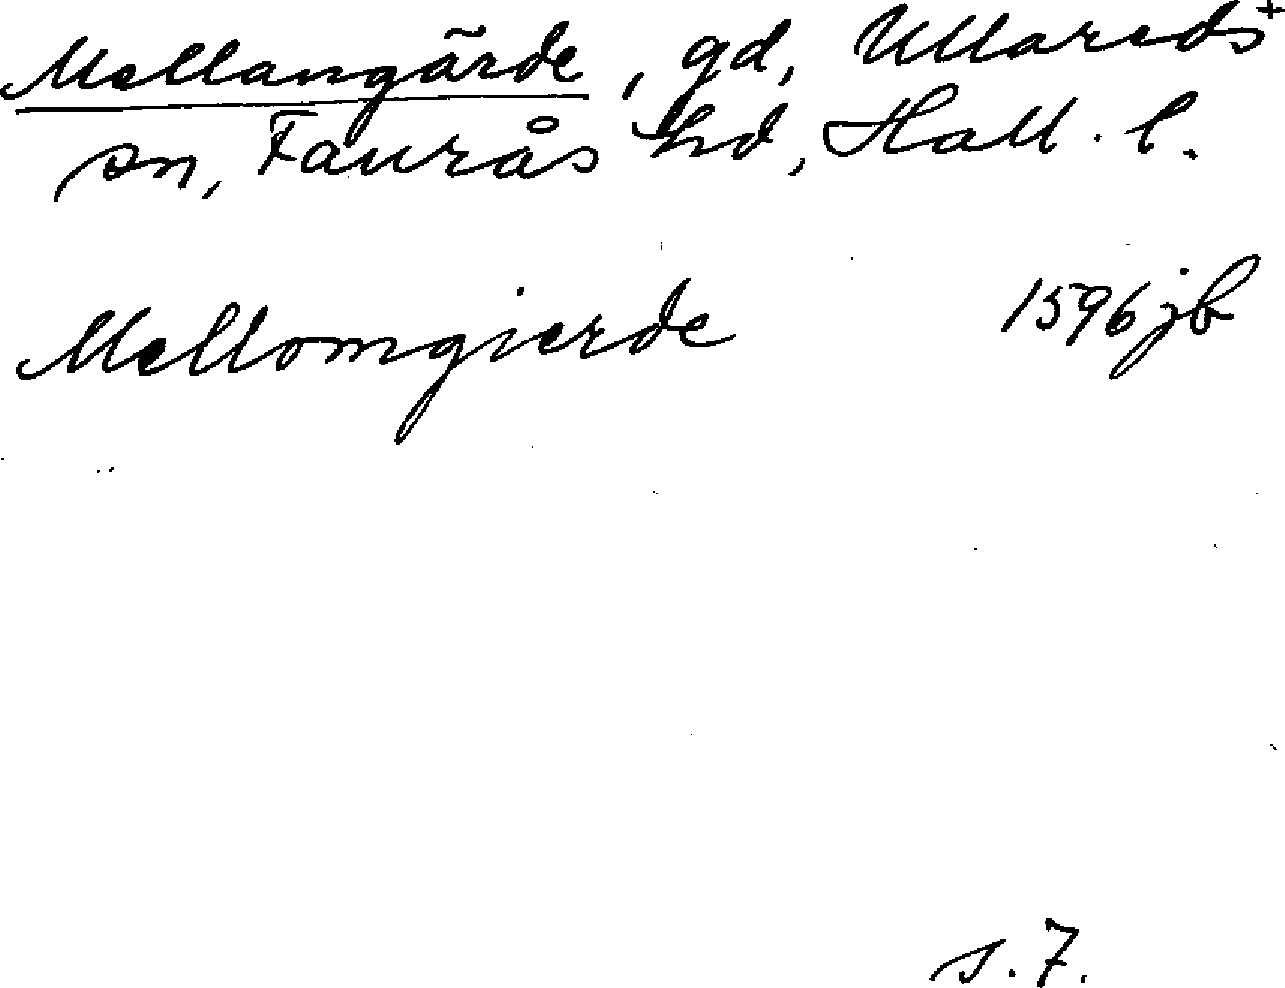 Mellangärde, gd, Ullareds+
sn, Faurås hd, Hall. l.
Mellomgierde 1596 jb
s. 7.